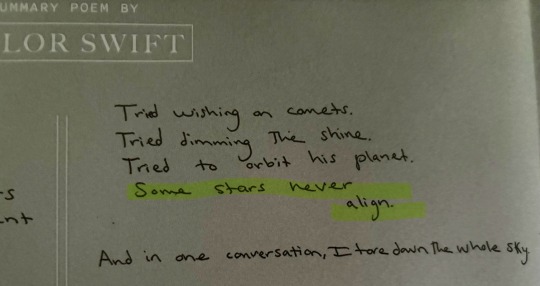 UMMARY POEM BY
LOR SWIFT
Tried wishing on comets.
Tried dimming the shine.
Tried to orbit his planet.
Some stars never
align.
And in one conversation, I tore down the whole sky
s
nt